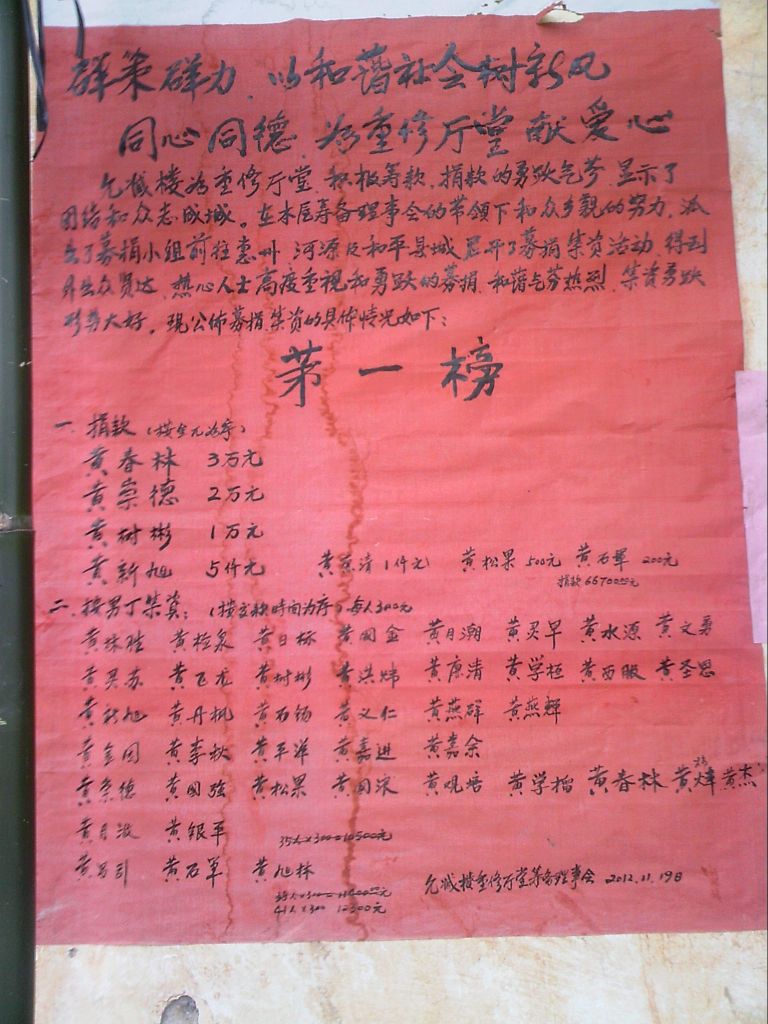 群策群力、以和谐社会树新风
同心同德、为重修厅堂献爱心
楼为重修厅堂、积极筹款、捐款的勇跃气芬、显示了
团结和众志成城。在本屋筹备理事会的带领下和众乡親的努力、派
出了募捐小组前往惠州、河源及和平县城召开了募捐集资活动、得到
外出众贤达、热心人士高度重视和勇跃的募捐、和谐气芬热烈、集资勇跃
形势大好。现公佈募捐集资的具体情况如下：
第一榜
一、捐款（按金元为序）
黄春林 3万元
黄崇德 2万元
黄树彬 1万元
黄新旭 5仟元 黄 清（1仟元） 黄松果 500元 黄石军 200元
捐款66700元
二、按男丁集资：（按交款时间为序）每人300元
黄 胜 黄 泉 黄日 黄国金 黄月潮 黄灵早 黄水源 黄文勇
黄 苏 黄飞龙 黄树彬 黄洪炜 黄康清 黄学桓 黄西 黄圣恩
黄新旭 黄丹枫 黄石 黄义仁 黄燕群 黄燕辉
黄金同 黄李秋 黄平洋 黄嘉进 黄嘉余
黄崇德 黄国强 黄松果 黄国 黄观培 黄学 黄春林 黄 炜 黄杰
黄月 黄银平 35人×300=10500元
黄 黄石军 黄旭林
楼重修厅堂筹备理事会 2012.11.19日
41人×300 12300元